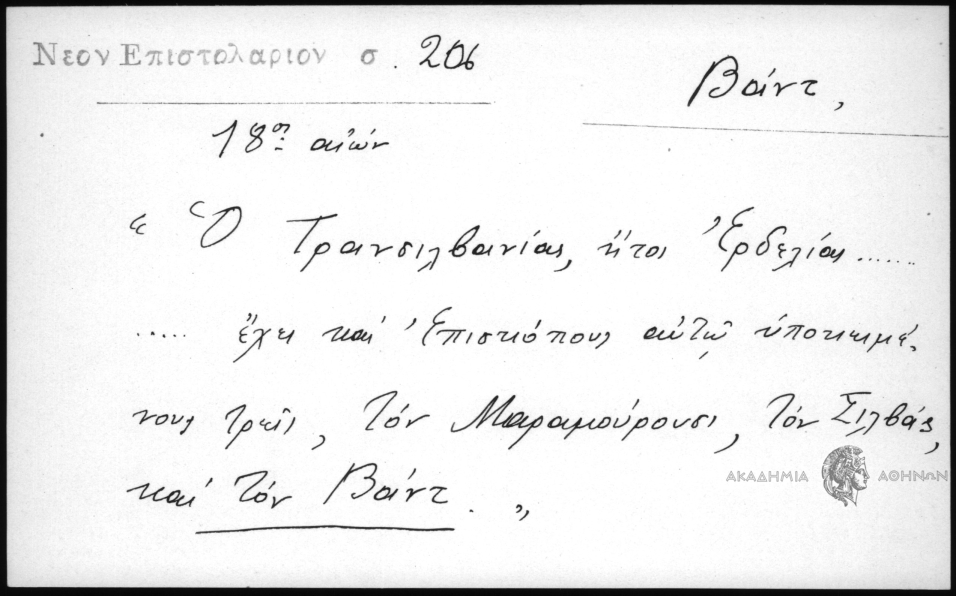 Νεον Επιστολαριον σ. 206
Βάντ,
18ος αἰών
« Ὁ Τρανσιλβανίας, ἤτοι Ἐρδελίας ......
..... ἔχει καί Ἐπισκόπους αὐτῷ ὑποκειμέ-
νους τρεῖς, τόν Μαραμούρουσι, τόν Σιλβάς,
καί τόν Βάντ. »
ΑΚΑΔΗΜΙΑ ΑΘΗΝΩΝ